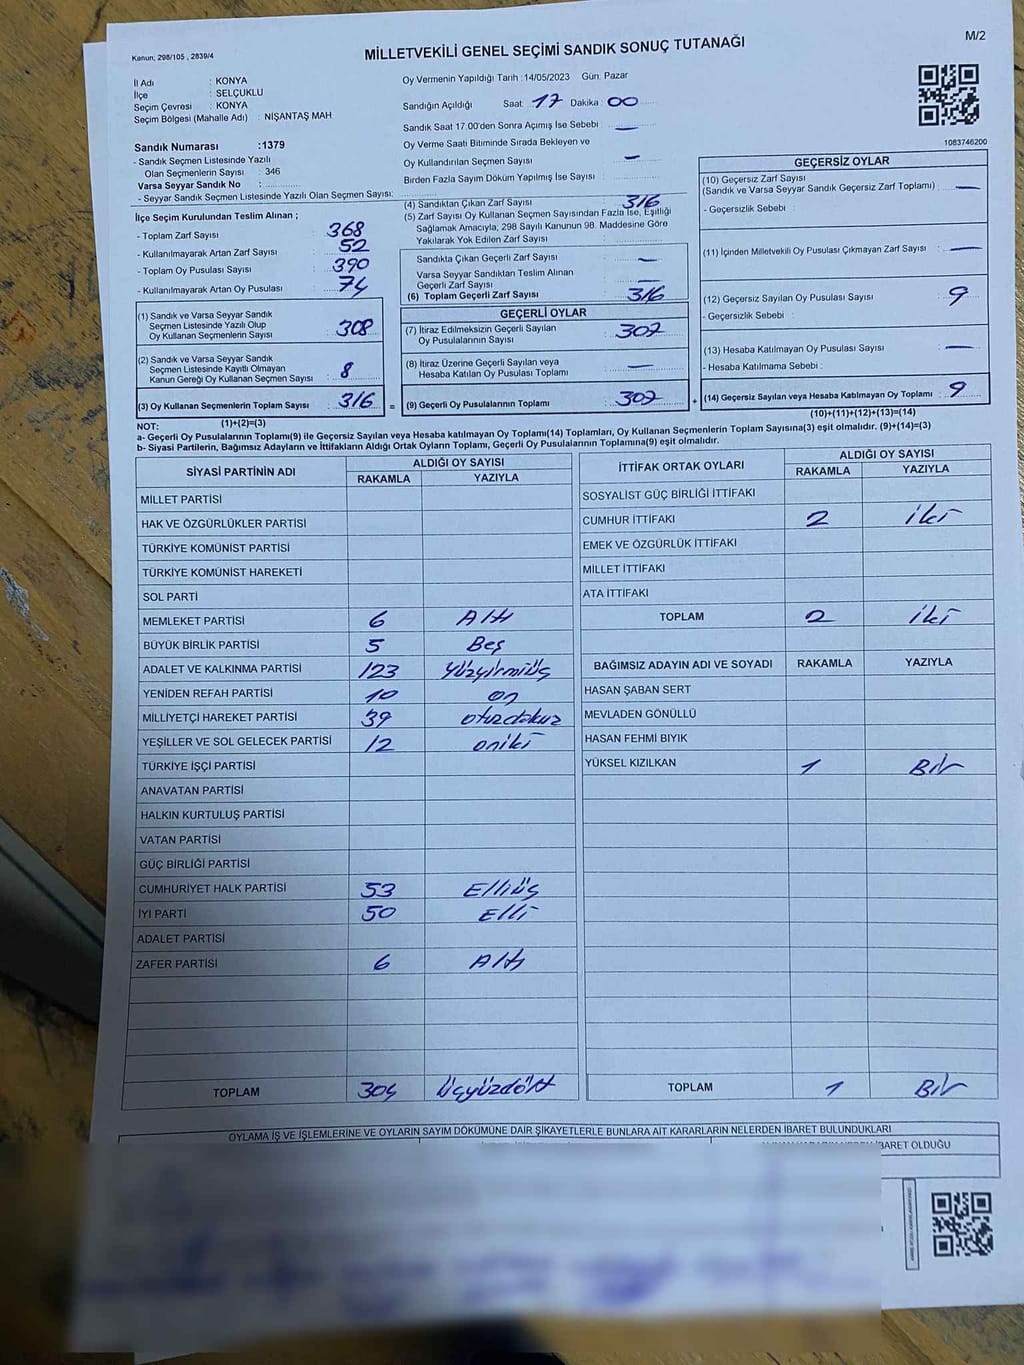 Kanun; 298/105 , 2839/4
MİLLETVEKİLİ GENEL SEÇİMİ SANDIK SONUÇ TUTANAĞI
M/2
İl Adı : KONYA
İlçe : SELÇUKLU
Seçim Çevresi : KONYA
Seçim Bölgesi (Mahalle Adı) : NİŞANTAŞ MAH
Sandık Numarası :1379
- Sandık Seçmen Listesinde Yazılı
Olan Seçmenlerin Sayısı : 346
Varsa Seyyar Sandık No :
- Seyyar Sandık Seçmen Listesinde Yazılı Olan Seçmen Sayısı:
Oy Vermenin Yapıldığı Tarih :14/05/2023 Gün: Pazar
Sandığın Açıldığı Saat: 17 Dakika 00
Sandık Saat 17.00'den Sonra Açımış İse Sebebi : —
Oy Verme Saati Bitiminde Sırada Bekleyen ve
Oy Kullandırılan Seçmen Sayısı : —
Birden Fazla Sayım Döküm Yapılmış İse Sayısı :
1083746200
İlçe Seçim Kurulundan Teslim Alınan ;
- Toplam Zarf Sayısı : 368
- Kullanılmayarak Artan Zarf Sayısı : 52
- Toplam Oy Pusulası Sayısı : 390
- Kullanılmayarak Artan Oy Pusulası : 74
(1) Sandık ve Varsa Seyyar Sandık
Seçmen Listesinde Yazılı Olup
Oy Kullanan Seçmenlerin Sayısı : 308
(2) Sandık ve Varsa Seyyar Sandık
Seçmen Listesinde Kayıtlı Olmayan
Kanun Gereği Oy Kullanan Seçmen Sayısı : 8
(3) Oy Kullanan Seçmenlerin Toplam Sayısı : 316 =
(1)+(2)=(3)
(4) Sandıktan Çıkan Zarf Sayısı : 316
(5) Zarf Sayısı Oy Kullanan Seçmen Sayısından Fazla İse, Eşitliği
Sağlamak Amacıyla; 298 Sayılı Kanunun 98. Maddesine Göre
Yakılarak Yok Edilen Zarf Sayısı :
Sandıkta Çıkan Geçerli Zarf Sayısı : —
Varsa Seyyar Sandıktan Teslim Alınan
Geçerli Zarf Sayısı : —
(6) Toplam Geçerli Zarf Sayısı : 316
GEÇERLİ OYLAR
(7) İtiraz Edilmeksizin Geçerli Sayılan
Oy Pusulalarının Sayısı : 307
(8) İtiraz Üzerine Geçerli Sayılan veya
Hesaba Katılan Oy Pusulası Toplamı : —
(9) Geçerli Oy Pusulalarının Toplamı : 307 +
GEÇERSİZ OYLAR
(10) Geçersiz Zarf Sayısı
(Sandık ve Varsa Seyyar Sandık Geçersiz Zarf Toplamı) : —
- Geçersizlik Sebebi :
(11) İçinden Milletvekili Oy Pusulası Çıkmayan Zarf Sayısı : —
(12) Geçersiz Sayılan Oy Pusulası Sayısı : 9
- Geçersizlik Sebebi :
(13) Hesaba Katılmayan Oy Pusulası Sayısı : —
- Hesaba Katılmama Sebebi :
(14) Geçersiz Sayılan veya Hesaba Katılmayan Oy Toplamı : 9
(10)+(11)+(12)+(13)=(14)
NOT:
a- Geçerli Oy Pusulalarının Toplamı(9) ile Geçersiz Sayılan veya Hesaba katılmayan Oy Toplamı(14) Toplamları, Oy Kullanan Seçmenlerin Toplam Sayısına(3) eşit olmalıdır. (9)+(14)=(3)
b- Siyasi Partilerin, Bağımsız Adayların ve İttifakların Aldığı Ortak Oyların Toplamı, Geçerli Oy Pusulalarının Toplamına(9) eşit olmalıdır.
SİYASİ PARTİNİN ADI
ALDIĞI OY SAYISI
RAKAMLA YAZIYLA
MİLLET PARTİSİ
HAK VE ÖZGÜRLÜKLER PARTİSİ
TÜRKİYE KOMÜNİST PARTİSİ
TÜRKİYE KOMÜNİST HAREKETİ
SOL PARTİ
MEMLEKET PARTİSİ 6 Altı
BÜYÜK BİRLİK PARTİSİ 5 Beş
ADALET VE KALKINMA PARTİSİ 123 Yüzyirmiüç
YENİDEN REFAH PARTİSİ 10 on
MİLLİYETÇİ HAREKET PARTİSİ 39 otuzdokuz
YEŞİLLER VE SOL GELECEK PARTİSİ 12 oniki
TÜRKİYE İŞÇİ PARTİSİ
ANAVATAN PARTİSİ
HALKIN KURTULUŞ PARTİSİ
VATAN PARTİSİ
GÜÇ BİRLİĞİ PARTİSİ
CUMHURİYET HALK PARTİSİ 53 Elliüç
İYİ PARTİ 50 Elli
ADALET PARTİSİ
ZAFER PARTİSİ 6 Altı
TOPLAM 304 Üçyüzdört
İTTİFAK ORTAK OYLARI
ALDIĞI OY SAYISI
RAKAMLA YAZIYLA
SOSYALİST GÜÇ BİRLİĞİ İTTİFAKI
CUMHUR İTTİFAKI 2 iki
EMEK VE ÖZGÜRLÜK İTTİFAKI
MİLLET İTTİFAKI
ATA İTTİFAKI
TOPLAM 2 iki
BAĞIMSIZ ADAYIN ADI VE SOYADI RAKAMLA YAZIYLA
HASAN ŞABAN SERT
MEVLADEN GÖNÜLLÜ
HASAN FEHMİ BIYIK
YÜKSEL KIZILKAN 1 Bir
TOPLAM 1 Bir
OYLAMA İŞ VE İŞLEMLERİNE VE OYLARIN SAYIM DÖKÜMÜNE DAİR ŞİKAYETLERLE BUNLARA AİT KARARLARIN NELERDEN İBARET BULUNDUKLARI
İBARET OLDUĞU